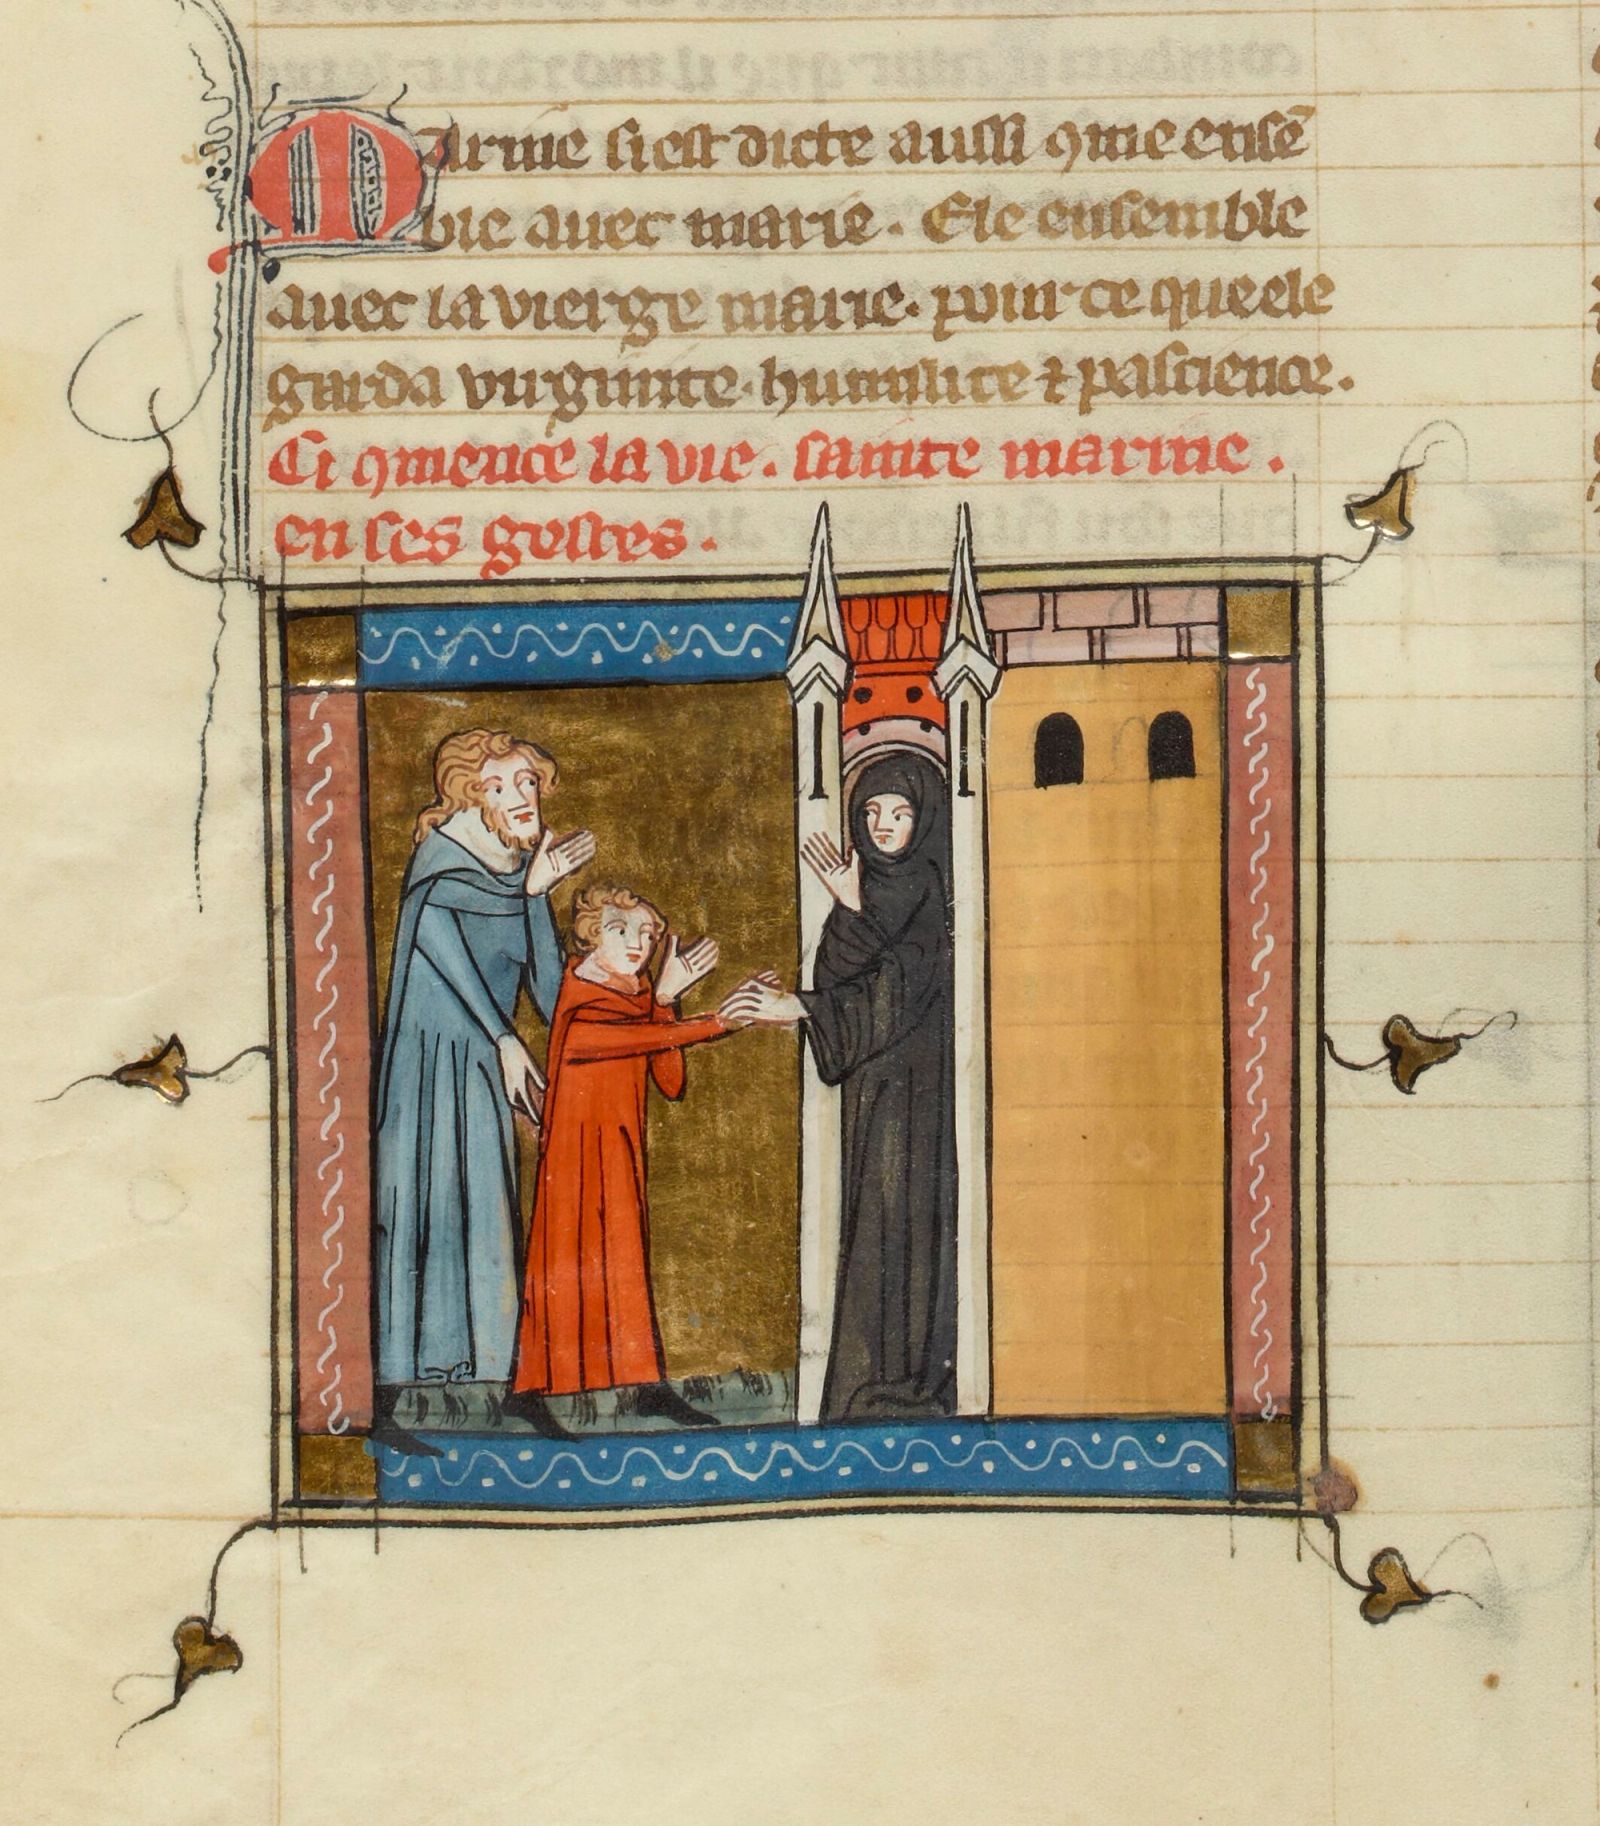 Marine si est dicte aussi ꝯme ensē
ble avec marie. Ele ensemble
avec la vierge marie. pour ce que ele
garda virginite. humilite ⁊ pascience.
Ci ꝯmence la vie. sainte marine.
en ses gestes.